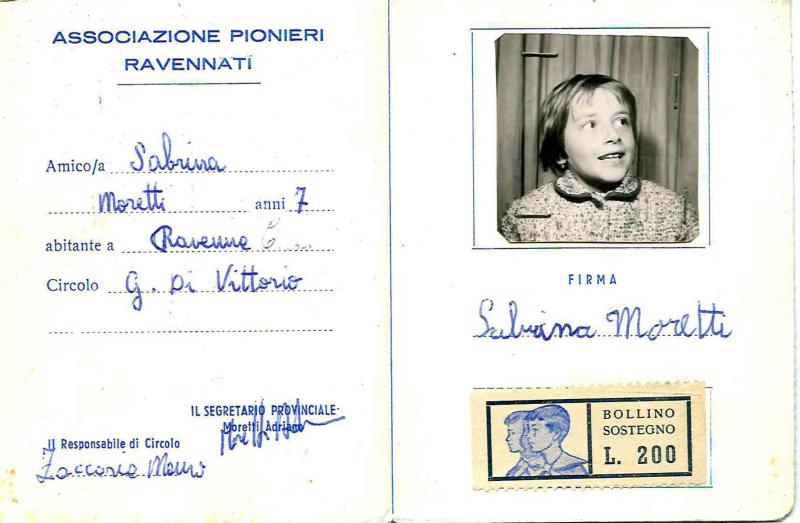 ASSOCIAZIONE PIONIERI
RAVENNATI
Amico/a Sabrina
Moretti anni 7
abitante a Ravenna
Circolo G. Di Vittorio
IL SEGRETARIO PROVINCIALE
Moretti Adriano
Il Responsabile di Circolo
Zaccaria Mauro
FIRMA
Sabrina Moretti
BOLLINO
SOSTEGNO
L. 200